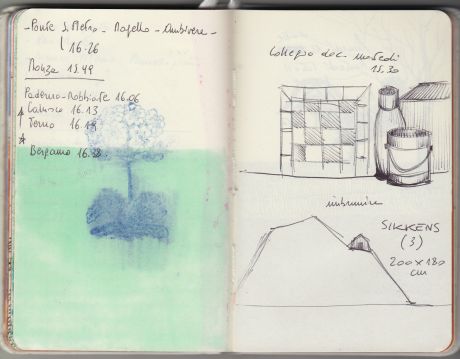 - Ponte S. Pietro - Mapello - Ambivere -
16.26
Monza 15.49
Paderno-Robbiate 16.06
Calusco 16.13
Terno 16.19
Bergamo
Collegio doc. martedì
15,30
imbrunire
SIKKENS
(3)
200x180
cm